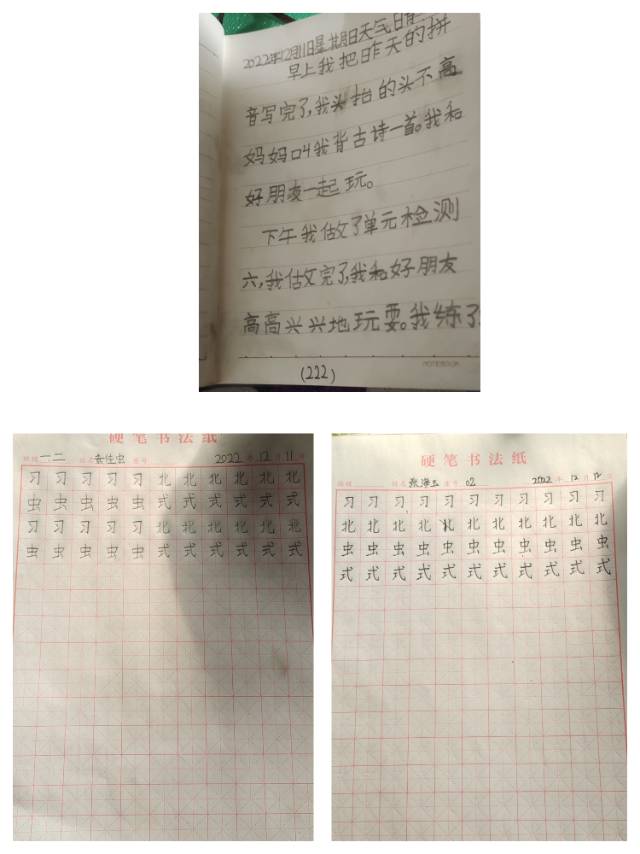 2022年12月11日星期日天气日晴
早上我把昨天的拼
音写完了,我头抬的头不高
妈妈叫我背古诗一首。我和
好朋友一起玩。
下午我做了单元检测
六,我做完了,我和好朋友
高高兴兴地玩耍。我练了
NOTEBOOK
(222)
硬笔书法纸
班级 一二 姓名 座号 2022年12月11日
习习习习习北北北北北北
虫虫虫虫虫式式式式式式
习习习习习北北北北北北
虫虫虫虫虫式式式式式式
硬笔书法纸
班级 姓名 张海 座号 02 2022年12月12日
习习习习习习习习习习
北北北北北北北北北北
虫虫虫虫虫虫虫虫虫虫
式式式式式式式式式式